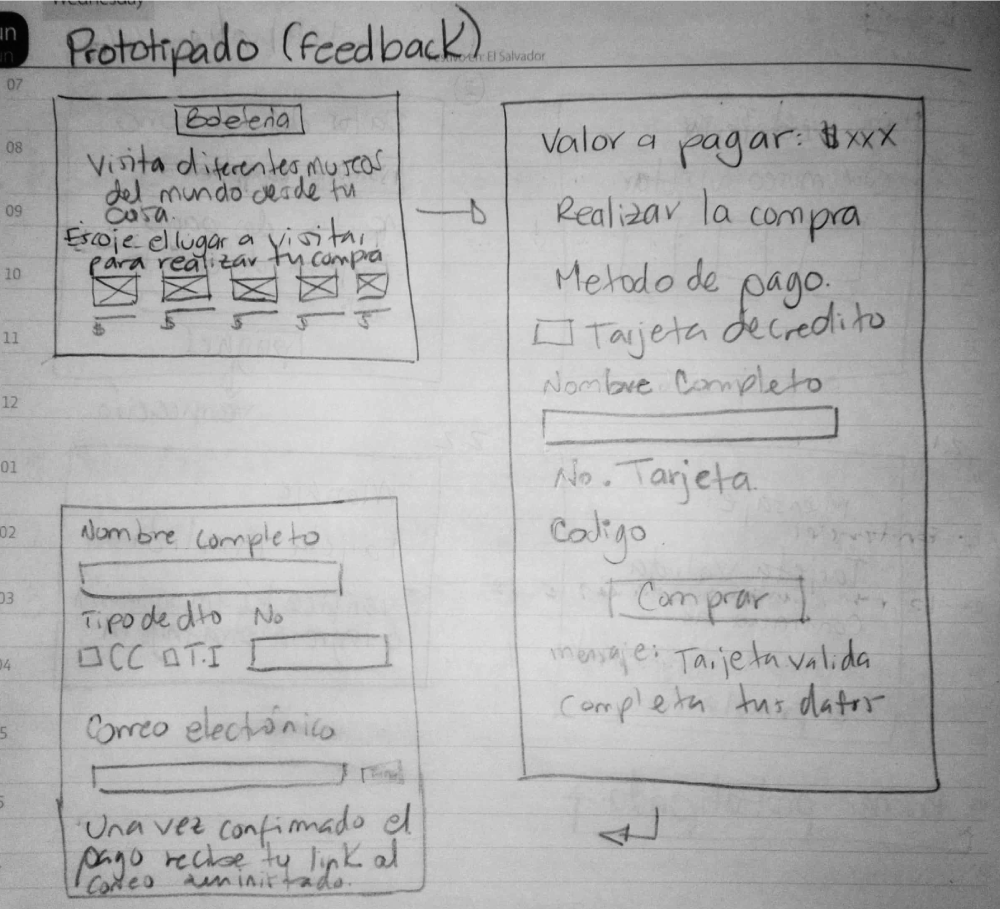 Wednesday
un
Prototipado (feedback)
El Salvador
07
08
09
10
11
12
01
02
03
04
5
Boleteria
Visita diferentes museos
del mundo desde tu
casa.
Escoje el lugar a visitar
para realizar tu compra
$ $ $ $ $
Valor a pagar: $xxx
Realizar la compra
Metodo de pago.
Tarjeta de credito
Nombre Completo
No. Tarjeta.
Codigo
Comprar
mensaje: Tarjeta valida
completa tus datos
Nombre completo
Tipo de dto No
CC T.I
Correo electrónico
Una vez confirmado el
pago recibe tu link al
correo suministrado.